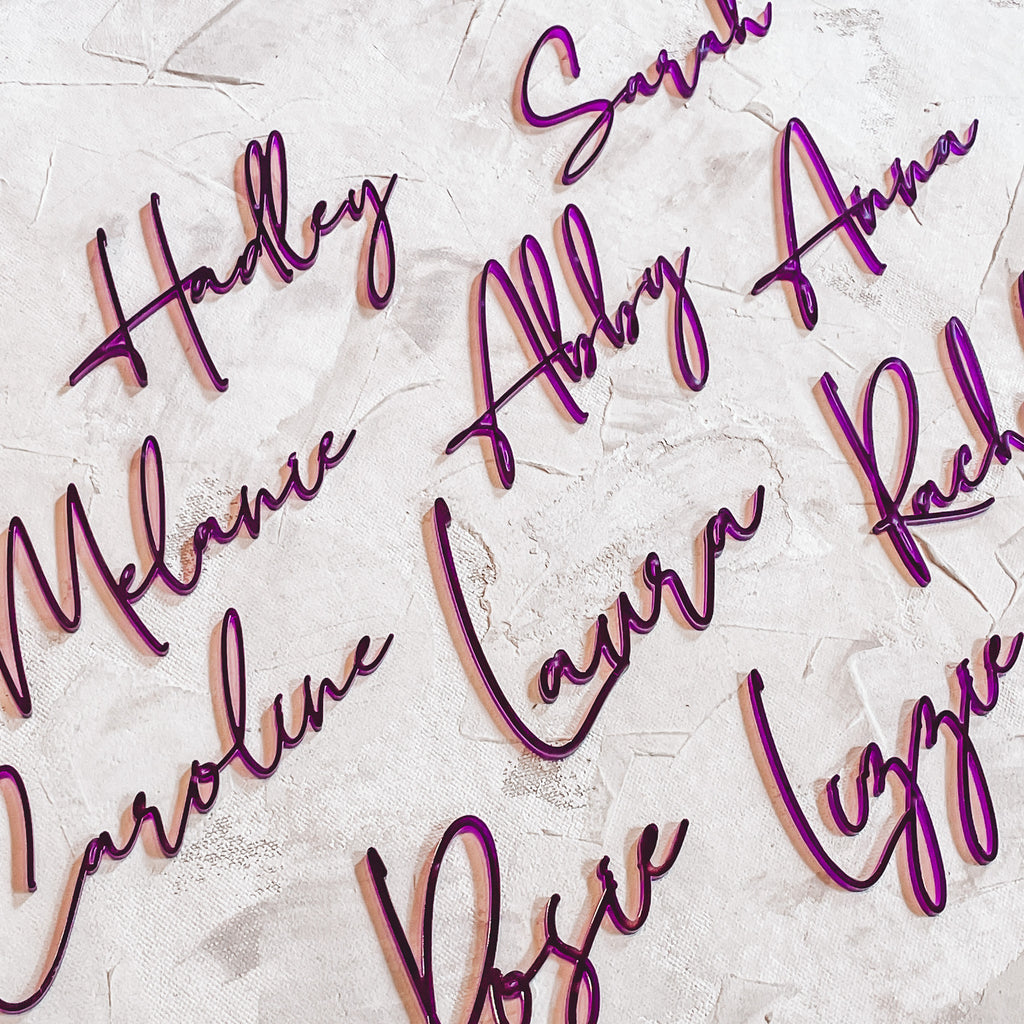 Sarah
Hadley
Abby
Anna
Rach
Melanie
Laura
Caroline
Lizzie
Rosie